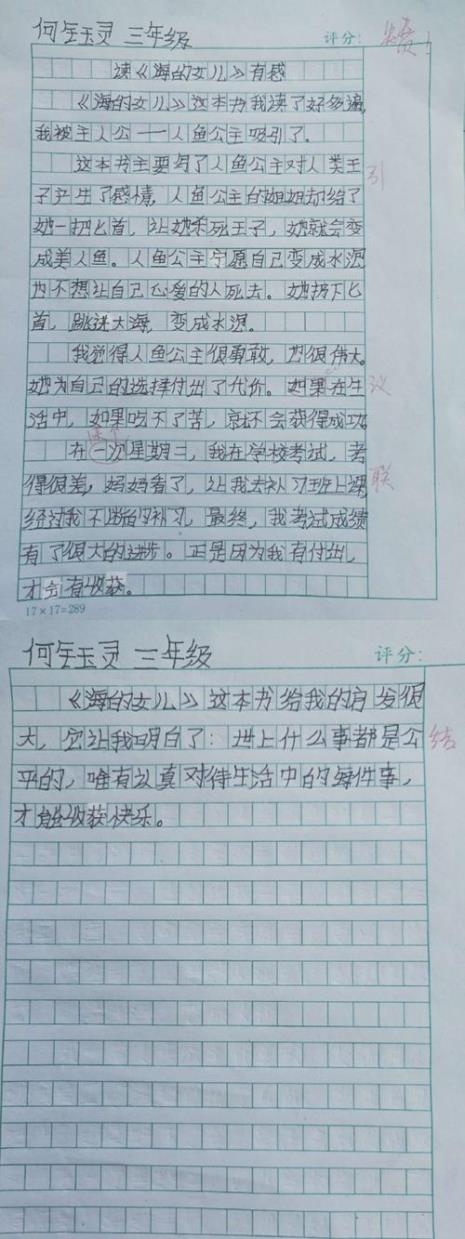 何钰灵 三年级
评分：
读《海的女儿》有感
《海的女儿》这本书我读了好多遍,
我被主人公——人鱼公主吸引了。
这本书主要写了人鱼公主对人类王
引
子产生了感情,人鱼公主的姐姐却给了
她一把匕首,让她杀死王子,她就会变
成美人鱼。人鱼公主宁愿自己变成水泡
也不想让自己心爱的人死去。她扔下匕
首,跳进大海,变成水泡。
我觉得人鱼公主很勇敢,也很伟大。
她为自己的选择付出了代价。如果在生
议
活中,如果吃不了苦,就不会获得成功。
在一次星期三,我在学校考试,考
得很差,妈妈看了,让我去补习班上课
联
经过我不断的补习,最终,我考试成绩
有了很大的进步。正是因为我有付出,
才会有收获。
17×17=289
何钰灵 三年级
评分：
《海的女儿》这本书给我的启发很
大,它让我明白了：世上什么事都是公
结
平的,唯有认真对待生活中的每件事,
才能收获快乐。